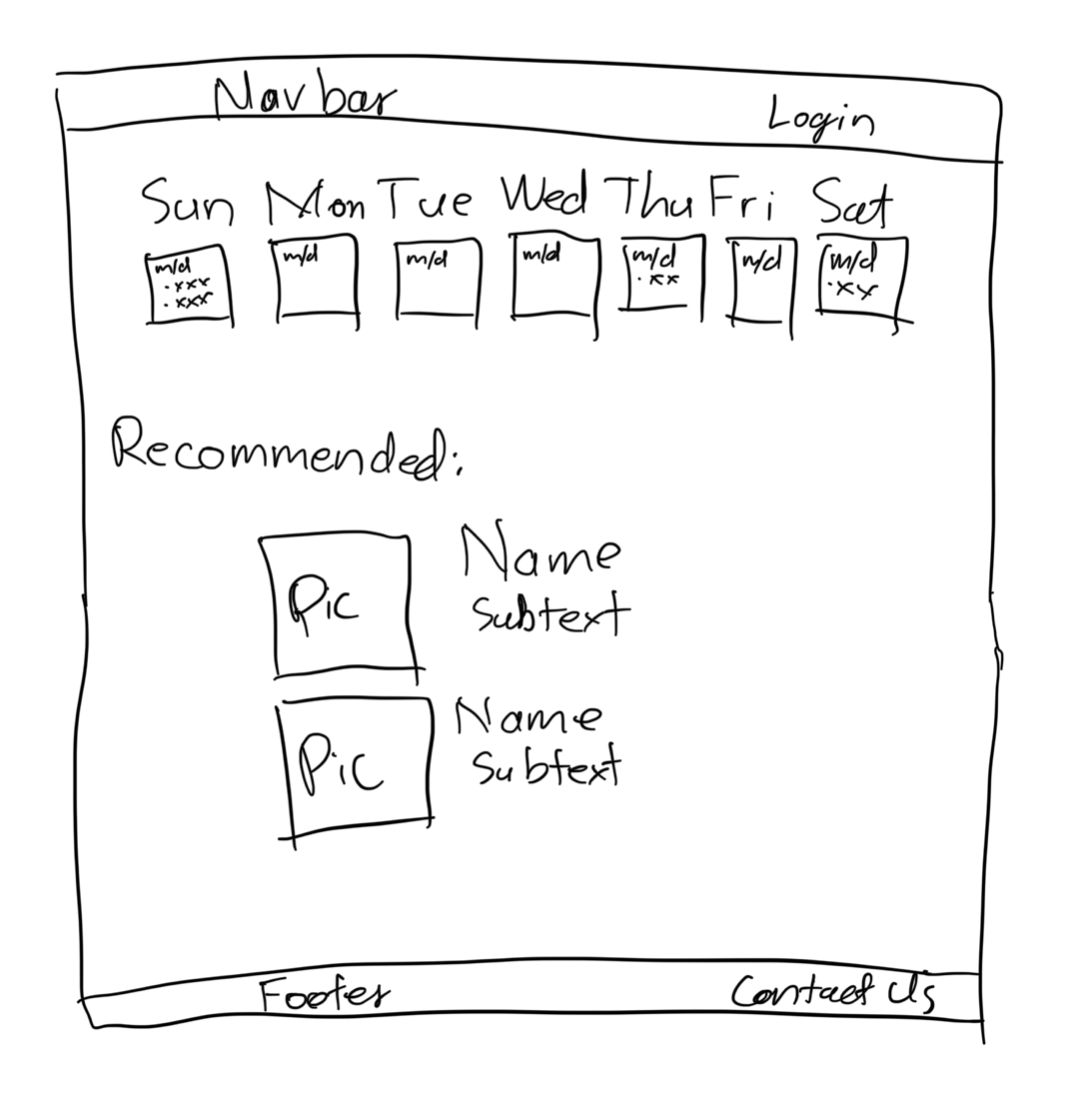 Navbar Login
Sun Mon Tue Wed Thu Fri Sat
m/d m/d m/d m/d m/d m/d m/d
·xxx ·xx ·xx
·xxx
Recommended:
Pic Name
Subtext
Pic Name
Subtext
Footer Contact Us